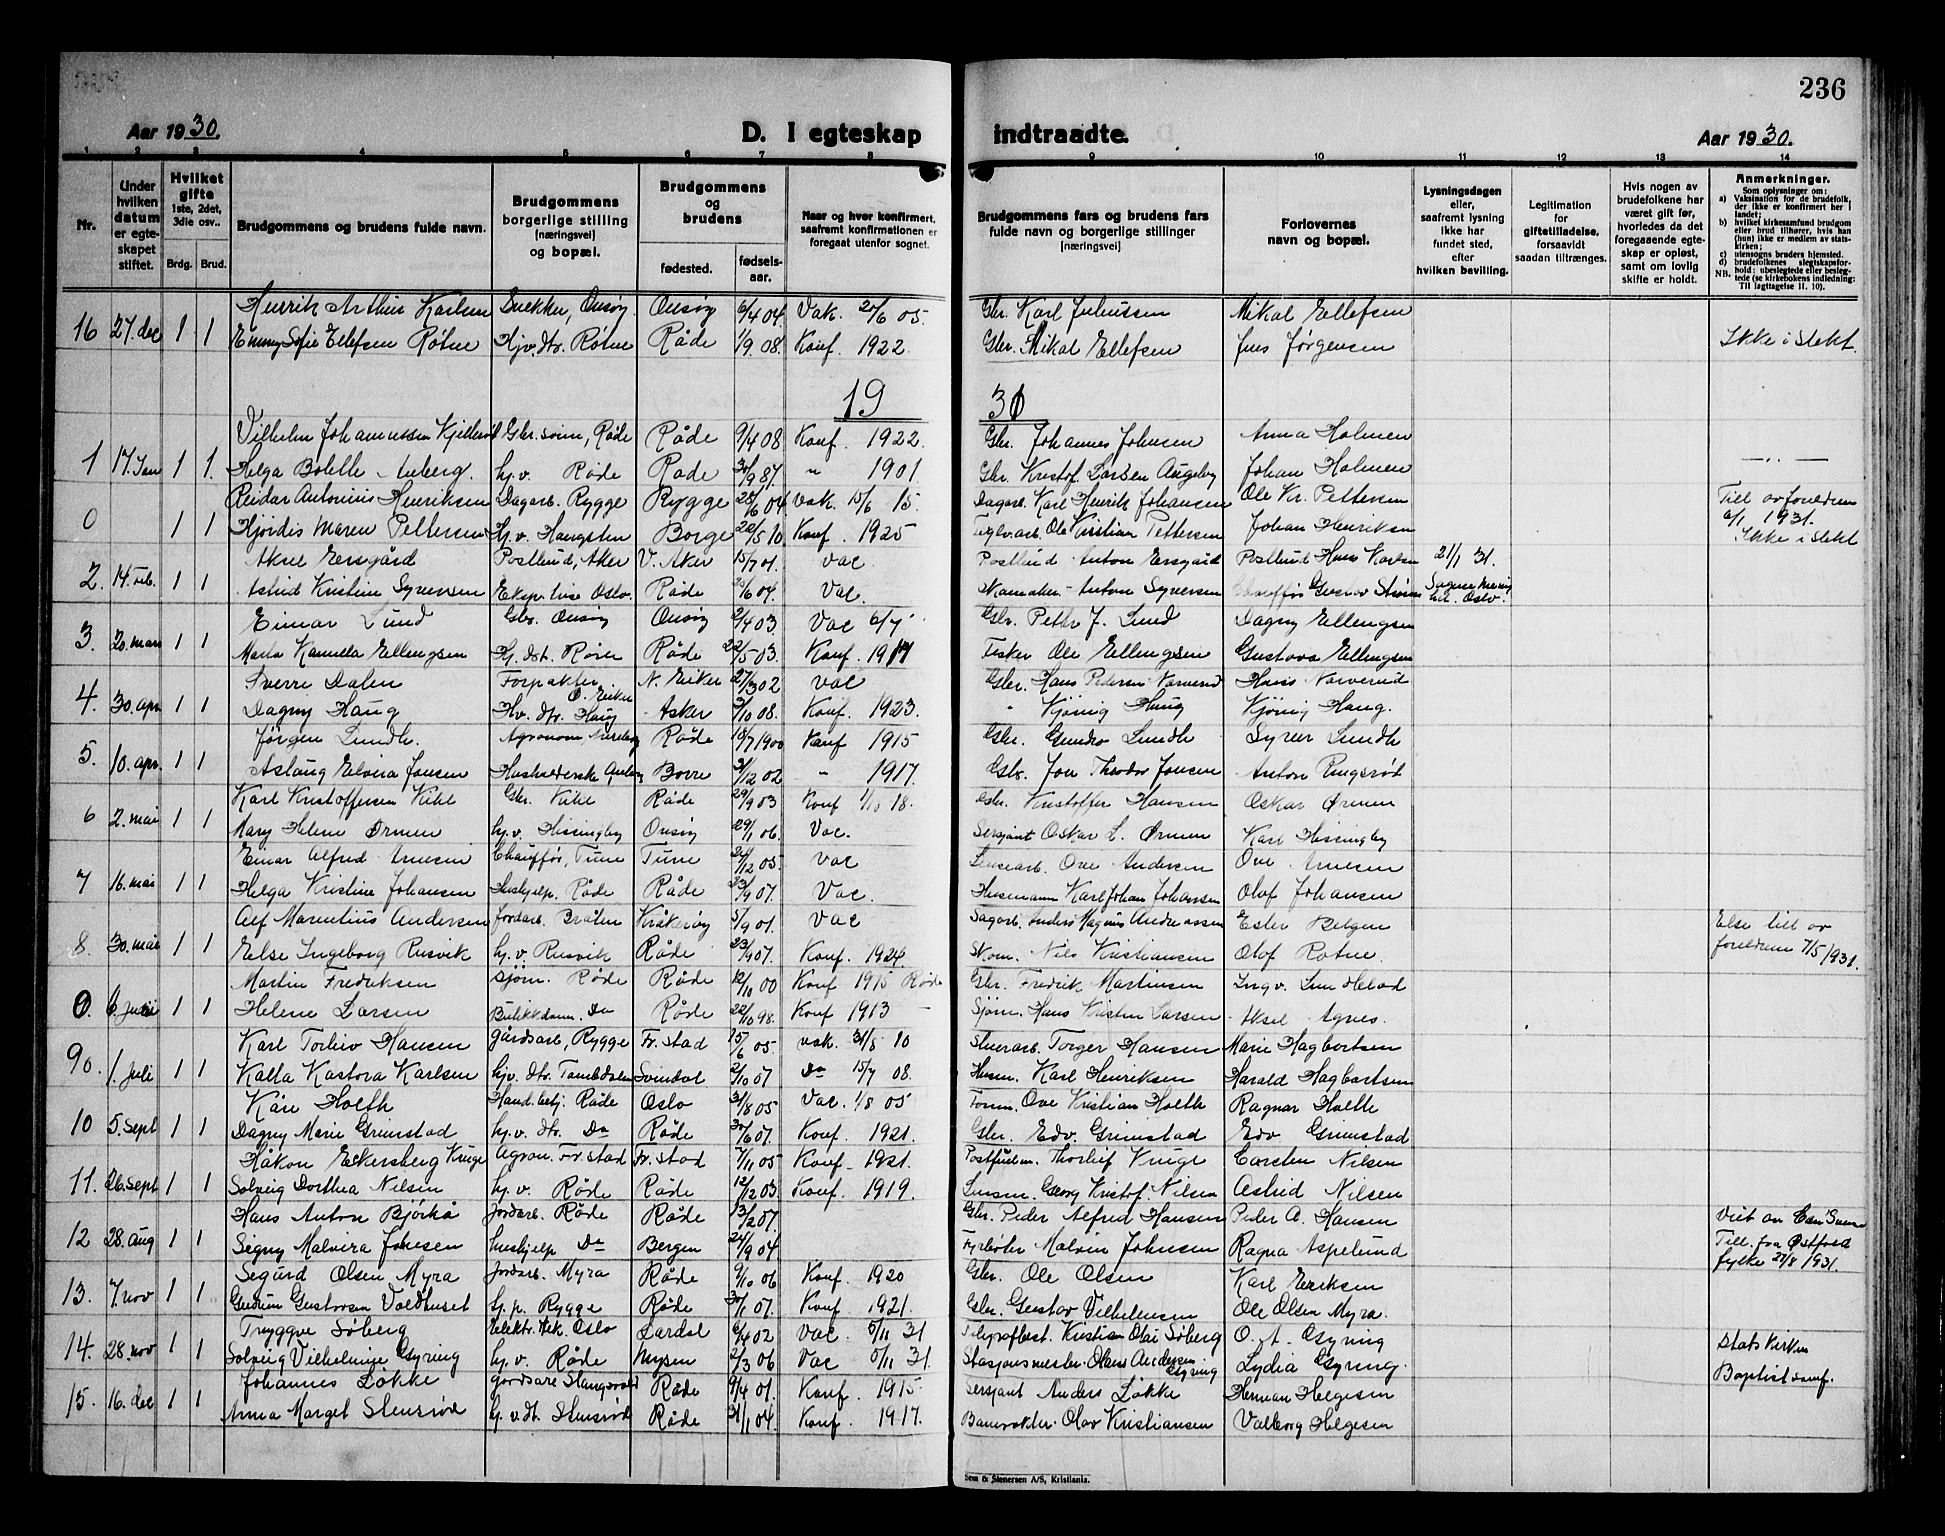 236
Aar 1930.
D. I egteskap
indtraadte.
Aar 1930.
1 2 3 4 5 6 7 8 9 10 11 12 13 14
Nr.
Under hvilken datum er egteskapet stiftet.
Hvilket gifte 1ste, 2det, 3die osv..
Brdg. Brud.
Brudgommens og brudens fulde navn.
Brudgommens borgerlige stilling (næringsvei) og bopæl.
Brudgommens og brudens
fødested. fødselsaar.
Naar og hvor konfirmert, saafremt konfirmationen er foregaat utenfor sognet.
Brudgommens fars og brudens fars fulde navn og borgerlige stillinger (næringsvei)
Forlovernes navn og bopæl.
Lysningsdagen eller, saafremt lysning ikke har fundet sted, efter hvilken bevilling.
Legitimation for giftetilladelse, forsaavidt saadan tiltrænges.
Hvis nogen av brudefolkene har været gift før, hvorledes da det foregaaende egteskap er opløst, samt om lovlig skifte er holdt.
Anmerkninger.
Som oplysninger om:
a) Vaksination for de brudefolk, der ikke er konfirmert her i landet;
b) hvilket kirkesamfund brudgom eller brud tilhører, hvis han (hun) ikke er medlem av statskirken;
c) utensogns bruders hjemsted.
d) brudefolkenes slegtskapsforhold: ubeslegtede eller beslegtede (se kirkebokens indledning:
NB. Til Iagttagelse II. 10).
Henrik Arthur Karlsen Snekker, Onsøy Onsøy 6/4 04 Vak. 20/6 05. Gbr. Karl Juliussen Mikal Ellefsen
16 27 dec 1 1 Emmy Sofie Ellefsen Røtne Hjv. dtr. Røtne Råde 1/9 08. Konf. 1922. Gbr. Mikal Ellefsen Jens Jørgensen Ikke i slekt.
19 31
Vilhelm Johannessen Gbr. sønn, Råde Råde 9/4 08 Konf. 1922. Gbr. Johannes Johnsen Anna Holmen
1 17. Jan 1 1. Helga Bolette Anberg. hj.v. Råde Råde 30/9 87. " 1901 Gbr. Kristof. Larsen Johan Holmen
Reidar Antonius Henriksen Dagarb. Rygge Rygge 28/6 04 vak. 15/6 15. Dagarb. Karl Henrik Johansen Ole Kr. Pettersen Till av foreldrene
0 1 1 Hjørdis Maren Pettersen Hj.v. Haugsten Borge 20/5 10 Konf. 1925 Teglv.arb. Ole Kristian Pettersen Johan Henriksen 6/1 1931. Ikke i slekt
Aksel Ersgård Postbud, Aker V. Aker 15/7 01. Vac. Postbud Anton Ersgård Postbud Hans Karlsen 21/1 31.
2. 14. Feb. 1 1 Astrid Kristine Syversen Eksp. trise Oslo. Råde 23/6 04. Vac. Anton Syversen Gustav Oslo.
Einar Lund Gbr. Onsøy Onsøy 2/4 03 Vac 6/7 Gbr. Petter J. Lund Dagny Ellengsen
3. 20. mars 1 1 Marta Kamilla Ellengsen Hj. dt. Råde 22/5 03. Konf. 1917 Fisker Ole Ellengsen Gustava Ellengsen
Sverre Dalen Forpakter Ø. Eiker N. Eiker 27/3 02 vac Gbr. Hans Pedersen Narverud Hans Narverud
4. 30. apr. 1 1 Dagny Haug Hv. dtr. Haug Asker 3/10 08. Konf. 1923. " Kjønig Haug Kjønig Haug.
Jørgen Lundh. Agronom, Råde 18/7 1900 Konf 1915 Gbr. Lundh Syver Lundh
5. 10. apr. 1 1 Aslaug Elvira Jonsen Borre 3/12 02 " 1917. Gbr. Jon Theodor Jonsen Anton Ringsrød
Karl Kristoffersen Kihl Gbr. Kihl Råde 29/9 03 Konf 1/10 18. Gbr. Kristoffer Hansen Oskar Ørmen
6 2. mai 1 1 Mary Helene Ørmen hj.v. Hissingby Onsøy 29/1 06. Vac. Sersjant Oskar L. Ørmen Karl Hissingby
Einar Alfred Arnesen Chauffør, Tune Tune 24/12 05 vac Ove Andersen Ove Arnesen
7 16. mai 1 1 Helga Kristine Johansen Hushjelp Råde Råde 23/9 07. Vac. Husmann Karl Johan Johansen Olof Johansen
Alf Marentius Andersen Jordarb. Bråten Kråkerøy 5/9 01. Vac Sagarb. Anders Magnus Andreassen Ester Else till av
8. 30. mai 1 1 Else Ingeborg Rusvik hj.v. Rusvik Råde 23/9 07. Konf. 1924. Nils Kristiansen Olof Rotne. foreldrene 7/5 1931.
Martin Fredriksen sjøm. Råde Råde 12/10 00 Konf 1915 Råde Gbr. Fredrik Martinsen Ingv.
0. 6. 1 1 Helene Larsen Butikkdam. Do Råde 22/10 98. Konf 1913 — Sjøm. Hans Kristen Larsen Aksel Agnes.
Karl Torleiv Hansen gårdsarb., Rygge Fr.stad 15/6 05. vak. 31/8 10 Torger Hansen Marie Hagbartsen
90. 1. juli 1 1 Kalla Kastora Karlsen hjv. dtr. Tombdalen Svindal 2/10 07 Do 15/7 08. Husm. Karl Henriksen Harald Hagbartsen
Kåre Holth Hand.betj. Råde Oslo 31/8 05 Vac. 1/8 05 Form. Ove Kristian Holth Ragnar Holth
10 5. Sept 1 1 Dagny Marie Grimstad hj.v. dtr. Do Råde 30/6 07. Konf. 1921. Gbr. Edv. Grimstad Edv Grimstad
Håkon Eckersberg Kruge Agron. Fr.stad Fr.stad 7/11 05 Konf. 1921. Postfullm. Thorleif Kruge Carsten Nilsen
11. 26. sept 1 1 Solveig Dorthea Nilsen hj.v. Råde Råde 12/12 03. Konf. 1919. Lensm. Georg Kristof. Nilsen Astrid Nilsen
Hans Anton Björkå Jordarb. Råde Råde 13/2 07. Gbr. Peder Alfred Hansen Peder A. Hansen Viet av
12 28. aug 1 1 Signy Malvira Johnsen hushjelp Do Bergen 24/9 04 Fyrbøter Malvin Johnsen Ragna Aspelund Till. fra Østfold
Sigurd Olsen Myra Jordarb. Myra Råde 9/10 06 Konf. 1920 Gbr. Ole Olsen Karl Eriksen fylke 21/8 1931.
13. 7. nov 1 1 Gudrun Gustavsen Voldhuset hj.p. Rygge Råde 30/1 07. Konf. 1921. Gbr. Gustav Vilhelmsen Ole Olsen Myra.
Tryggve Søberg Elektr. tek. Oslo Lardal 6/4 02 Vac. 5/11 31 Kristian Olai Søberg O. A. Gyring Statskirken
14. 28. nov 1 1 Solveig Vilhelmine Gyring hj.v. Råde Mysen 2/3 06 Vac 5/11 31. Stasjonsmester Olaus Andersen Gyring Lydia Gyring. Baptistsamf.
Johannes Løkke gårdsarb. Råde 9/4 01. Konf. 1915. Sersjant Anders Løkke Herman Helgesen
15. 16. dec 1 1 Anna Marget Stensrød hj.v.dt. Stensrød Råde 31/1 04. Konf. 1917. Banevokter Olav Kristiansen Valborg Helgesen
Sem & Stenersen A/S, Kristiania.